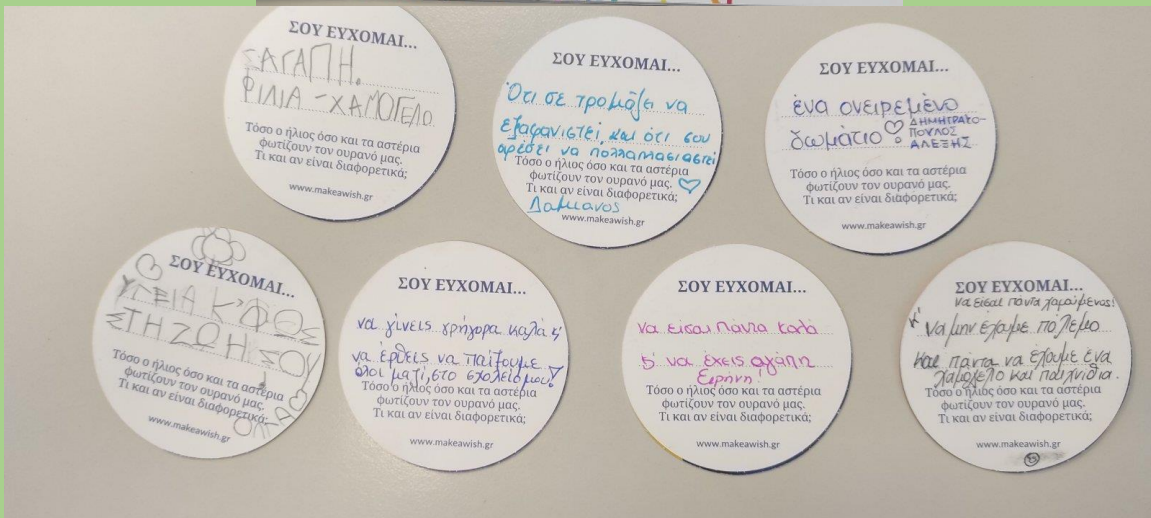 ΣΟΥ ΕΥΧΟΜΑΙ...
ΣΑΓΑΠΗ.
ΦΙΛΙΑ - ΧΑΜΟΓΕΛΟ
Τόσο ο ήλιος όσο και τα αστέρια
φωτίζουν τον ουρανό μας.
Τι και αν είναι διαφορετικά;
www.makeawish.gr
ΣΟΥ ΕΥΧΟΜΑΙ...
Ότι σε τρομάζει να
εξαφανιστεί, και ότι σου
αρέσει να πολλαπλασιαστεί
Τόσο ο ήλιος όσο και τα αστέρια
φωτίζουν τον ουρανό μας.
Τι και αν είναι διαφορετικά;
Δαμιανος
www.makeawish.gr
ΣΟΥ ΕΥΧΟΜΑΙ...
ένα ονειρεμένο
δωμάτιο
ΔΗΜΗΤΡΑΚΟ-
ΠΟΥΛΟΣ
ΑΛΕΞΗΣ
Τόσο ο ήλιος όσο και τα αστέρια
φωτίζουν τον ουρανό μας.
Τι και αν είναι διαφορετικά;
www.makeawish.gr
ΣΟΥ ΕΥΧΟΜΑΙ...
ΥΓΕΙΑ Κ' ΦΩΣ
ΣΤΗ ΖΩΗ ΣΟΥ
Τόσο ο ήλιος όσο και τα αστέρια
φωτίζουν τον ουρανό μας.
Τι και αν είναι διαφορετικά;
www.makeawish.gr
ΣΟΥ ΕΥΧΟΜΑΙ...
να γίνεις γρήγορα καλά κ'
να έρθεις να παίξουμε
όλοι μαζί, στο σχολείο μου!
Τόσο ο ήλιος όσο και τα αστέρια
φωτίζουν τον ουρανό μας.
Τι και αν είναι διαφορετικά;
www.makeawish.gr
ΣΟΥ ΕΥΧΟΜΑΙ...
να εισαι παντα καλα
κ' να έχεις αγάπη
Ειρήνη
Τόσο ο ήλιος όσο και τα αστέρια
φωτίζουν τον ουρανό μας.
Τι και αν είναι διαφορετικά;
www.makeawish.gr
ΣΟΥ ΕΥΧΟΜΑΙ...
να είσαι πάντα χαρούμενος!
κ' να μην έχουμε πόλεμο
και πάντα να έχουμε ένα
χαμόγελο και παιχνίδια.
Τόσο ο ήλιος όσο και τα αστέρια
φωτίζουν τον ουρανό μας.
Τι και αν είναι διαφορετικά;
www.makeawish.gr